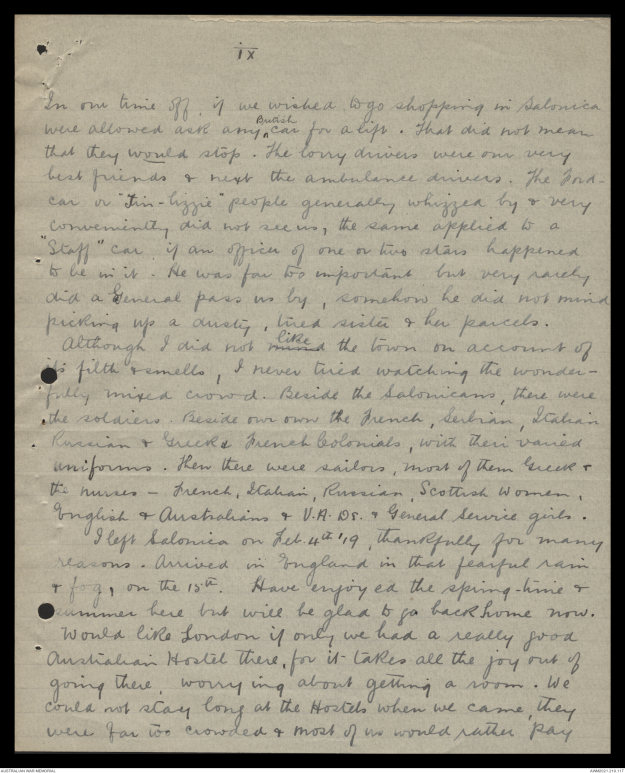 ix
In our time off, if we wished to go shopping in Salonica
were allowed ask any British car for a lift. That did not mean
that they would stop. The lorry drivers were our very
best friends & next the ambulance drivers. The Ford-
car or "Tin-lizzie" people generally whizzed by & very
conveniently did not see us, the same applied to a
"Staff" car if an officer of one or two stars happened
to be in it. He was far too important but very rarely
did a General pass us by, somehow he did not mind
picking up a dusty, tired sister & her parcels.
Although I did not mind like the town on account of
it's filth & smells, I never tired watching the wonder-
fully mixed crowd. Beside the Salonicans, there were
the soldiers. Beside our own the French, Serbian, Italian
Russian & Greek & French Colonials, with their varied
uniforms. Then there were sailors, most of them Greek &
the nurses - French, Italian, Russian, Scottish Women,
English & Australians & V.A.Ds. & General Service girls.
I left Salonica on Feb. 4th '19, thankfully for many
reasons. Arrived in England in that fearful rain
& fog, on the 15th. Have enjoyed the spring-time &
summer here but will be glad to go back home now.
Would like London if only we had a really good
Australian Hostel there, for it takes all the joy out of
going there, worrying about getting a room. We
could not stay long at the Hostels when we came, they
were far too crowded & most of us would rather pay
AUSTRALIAN WAR MEMORIAL